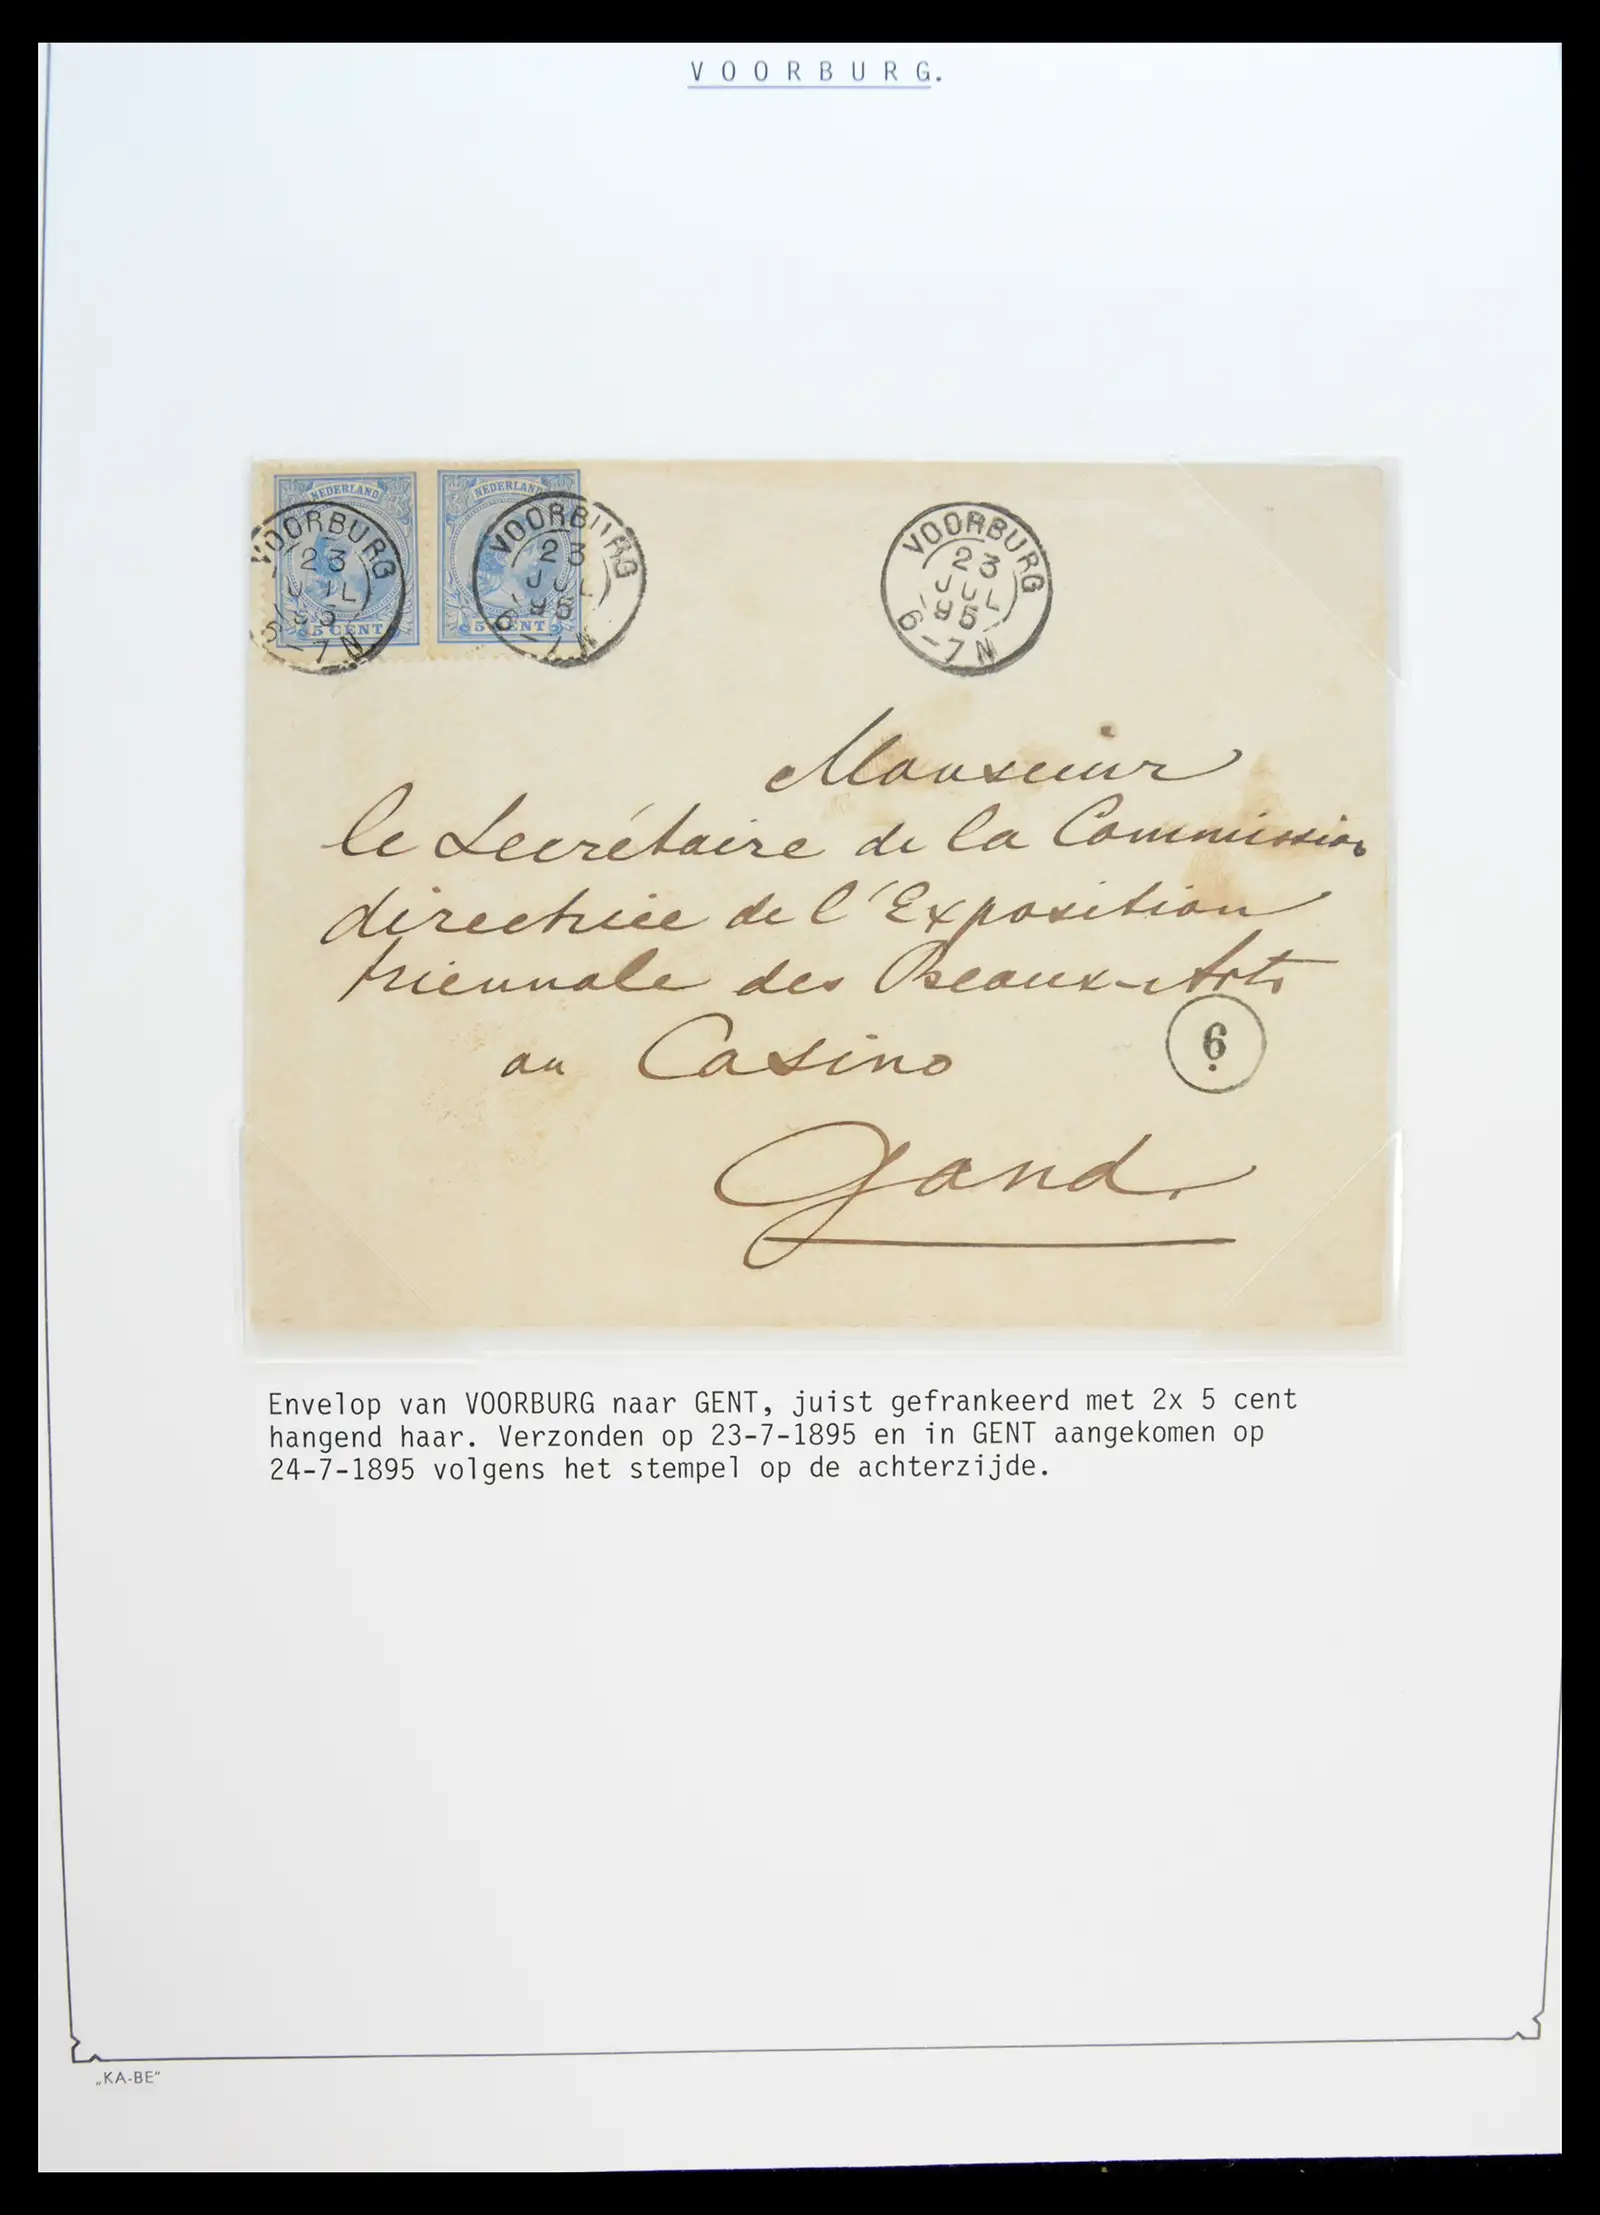 VOORBURG.
NEDERLAND
NEDERLAND
VOORBURG
23
JUL
95
6-7N
VOORBURG
23
JUL
95
6-7N
VOORBURG
23
JUL
95
6-7N
5 CENT
5 CENT
Monsieur
le Secrétaire de la Commission
directrice de l'Exposition
triennale des Beaux-Arts
au Casino
6
Gand.
Envelop van VOORBURG naar GENT, juist gefrankeerd met 2x 5 cent
hangend haar. Verzonden op 23-7-1895 en in GENT aangekomen op
24-7-1895 volgens het stempel op de achterzijde.
„KA-BE"